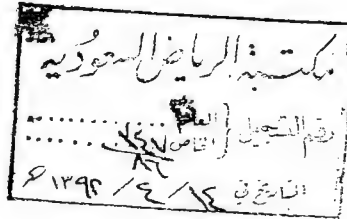 مكتبة الرياض السعودية
رقم التسجيل { العام ..........
الخاص ..........
٨٦
التاريخ في ١٤ / ٤ / ١٣٩٢ ع